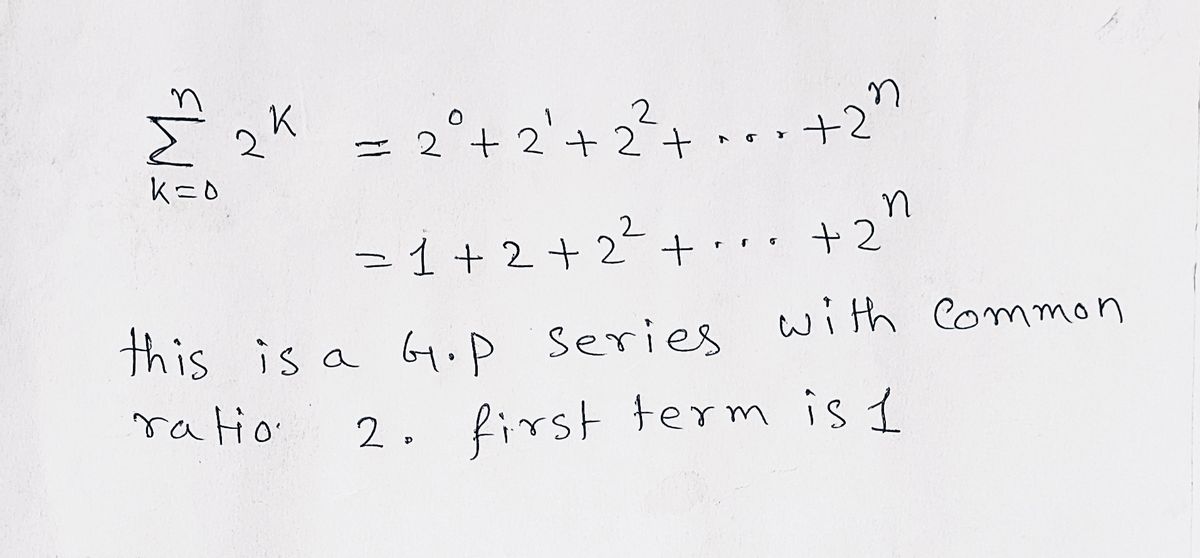 n
Σ 2^K = 2^0 + 2^1 + 2^2 + .... + 2^n
K=0
= 1 + 2 + 2^2 + .... + 2^n
this is a G.P series with common
ratio 2. first term is 1